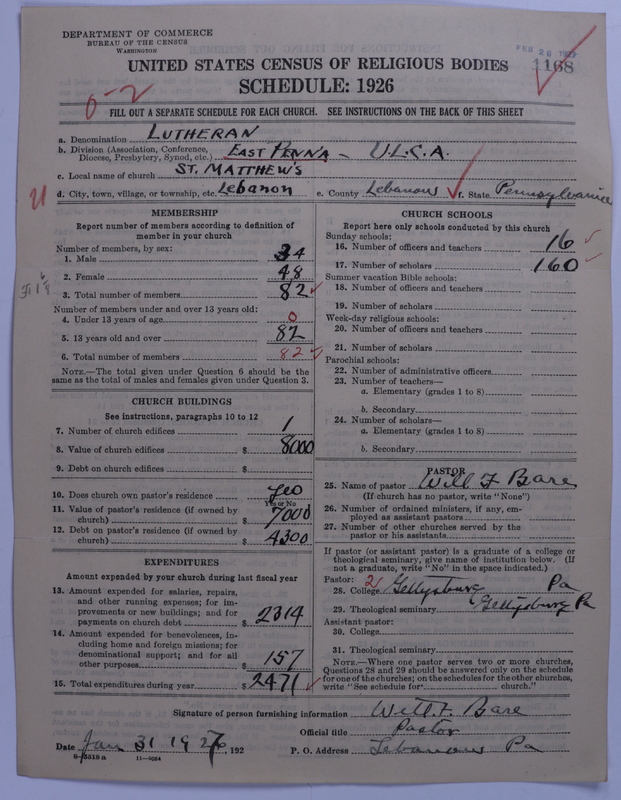 DEPARTMENT OF COMMERCE
BUREAU OF THE CENSUS
WASHINGTON
UNITED STATES CENSUS OF RELIGIOUS BODIES
SCHEDULE: 1926
1168
0-2
FILL OUT A SEPARATE SCHEDULE FOR EACH CHURCH. SEE INSTRUCTIONS ON THE BACK OF THIS SHEET
a. Denomination LUTHERAN
b. Division (Association, Conference, Diocese, Presbytery, Synod, etc.) EAST PENNA - U.L.C.A.
c. Local name of church ST. MATTHEW'S
d. City, town, village, or township, etc. Lebanon e. County Lebanon f. State Pennsylvania
MEMBERSHIP
Report number of members according to definition of
member in your church
Number of members, by sex:
1. Male 34
2. Female 48
3. Total number of members 82
Number of members under and over 13 years old:
4. Under 13 years of age 0
5. 13 years old and over 82
6. Total number of members 82
NOTE.—The total given under Question 6 should be the
same as the total of males and females given under Question 3.
CHURCH BUILDINGS
See instructions, paragraphs 10 to 12
7. Number of church edifices 1
8. Value of church edifices $ 8000
9. Debt on church edifices $
10. Does church own pastor's residence Yes
Yes or No
11. Value of pastor's residence (if owned by
church) $ 7000
12. Debt on pastor's residence (if owned by
church) $ 4300
EXPENDITURES
Amount expended by your church during last fiscal year
13. Amount expended for salaries, repairs,
and other running expenses; for im-
provements or new buildings; and for
payments on church debt $ 2314
14. Amount expended for benevolences, in-
cluding home and foreign missions; for
denominational support; and for all
other purposes $ 157
15. Total expenditures during year $ 2471
CHURCH SCHOOLS
Report here only schools conducted by this church
Sunday schools:
16. Number of officers and teachers 16
17. Number of scholars 160
Summer vacation Bible schools:
18. Number of officers and teachers
19. Number of scholars
Week-day religious schools:
20. Number of officers and teachers
21. Number of scholars
Parochial schools:
22. Number of administrative officers
23. Number of teachers—
a. Elementary (grades 1 to 8)
b. Secondary
24. Number of scholars—
a. Elementary (grades 1 to 8)
b. Secondary
PASTOR
25. Name of pastor Will F Bare
(If church has no pastor, write "None")
26. Number of ordained ministers, if any, em-
ployed as assistant pastors
27. Number of other churches served by the
pastor or his assistants
If pastor (or assistant pastor) is a graduate of a college or
theological seminary, give name of institution below. (If
not a graduate, write "No" in the space indicated.)
Pastor: 2
28. College Gettysburg Pa
29. Theological seminary Gettysburg Pa
Assistant pastor:
30. College
31. Theological seminary
NOTE.—Where one pastor serves two or more churches,
Questions 28 and 29 should be answered only on the schedule
for one of the churches; on the schedules for the other churches,
write "See schedule for church."
Signature of person furnishing information Will. F. Bare
Official title Pastor
Date Jan 31 1927, 192
P. O. Address Lebanon Pa
8-5518 a 11-9054